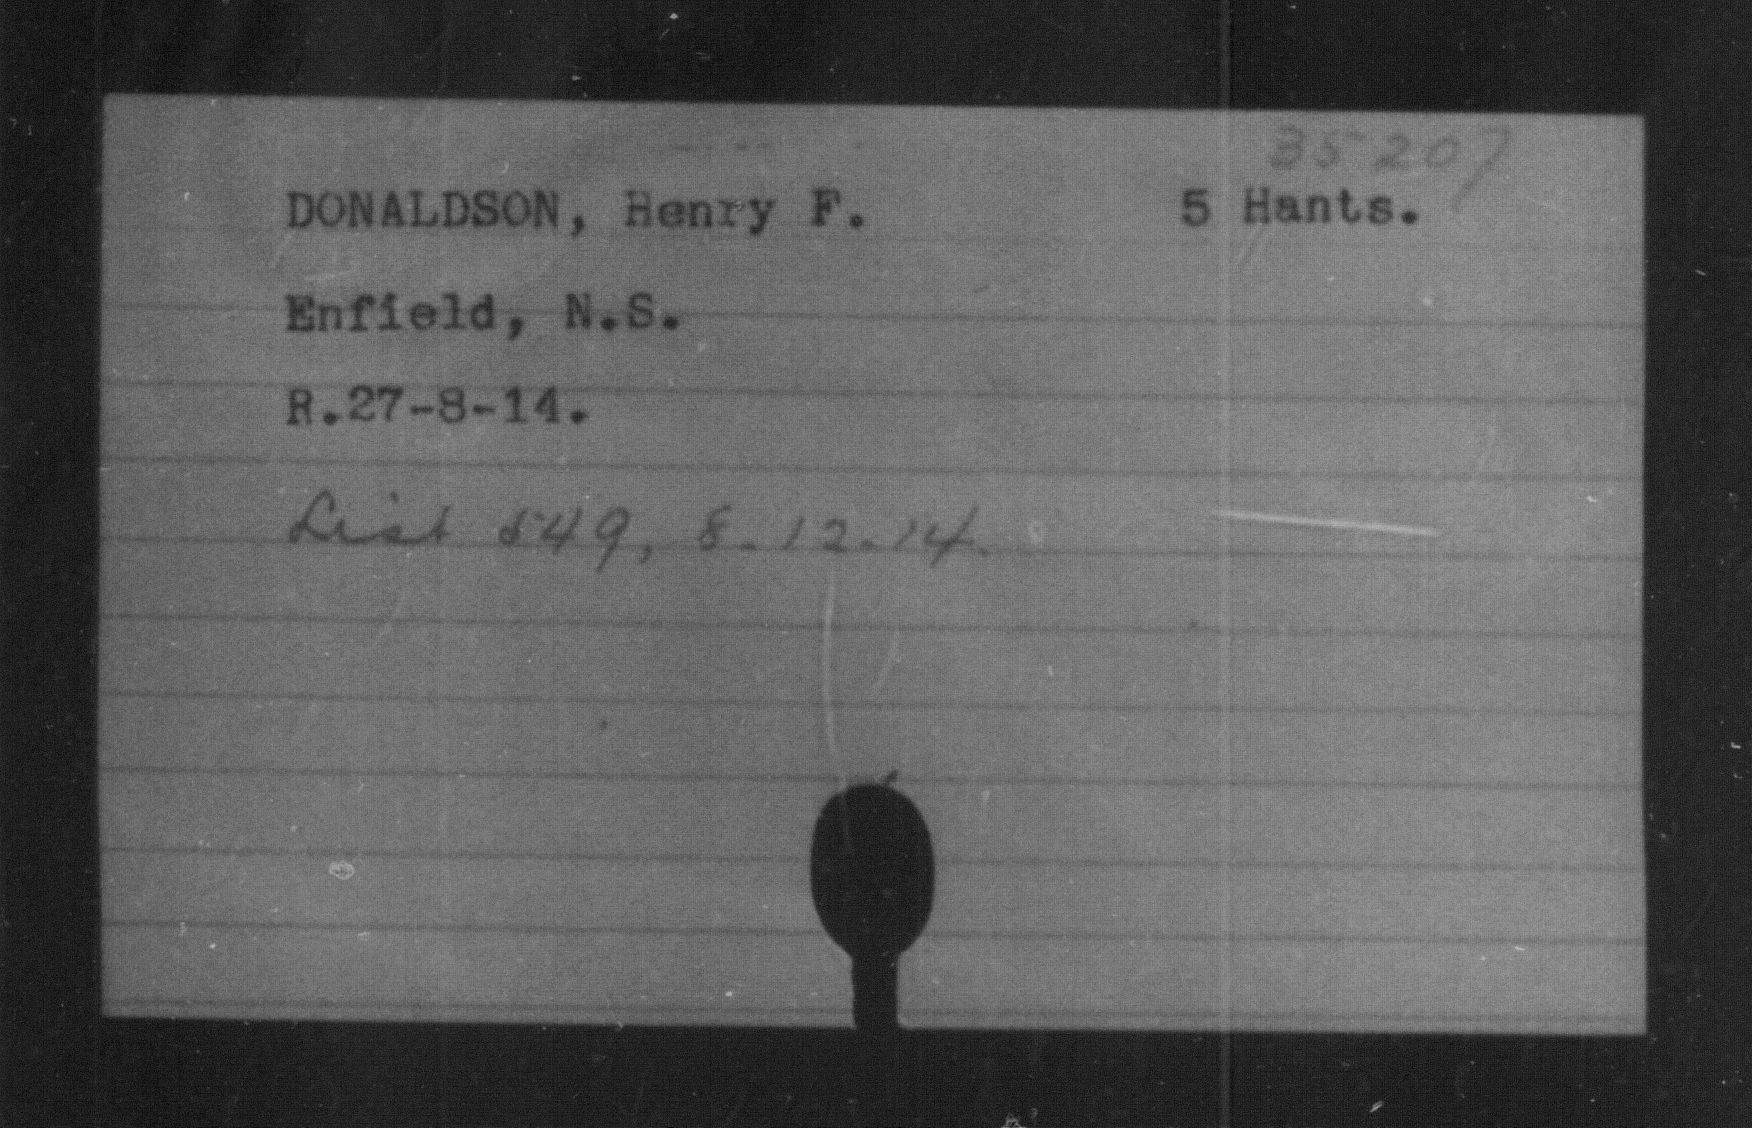 35207
DONALDSON, Henry F. 5 Hants.
Enfield, N.S.
R.27-8-14.
List 549, 8-12-14.